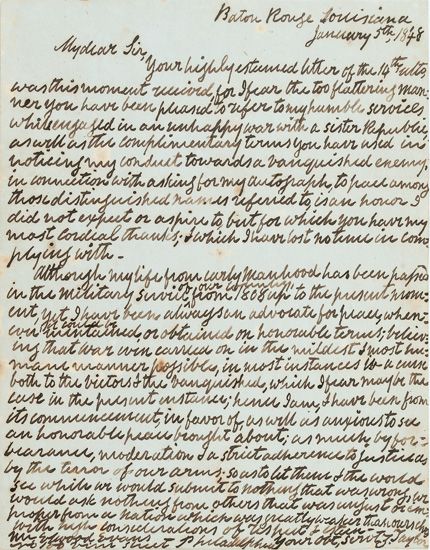 Baton Rouge Louisiana
January 5th, 1848
My dear Sir,
Your highly esteemed letter of the 14th ulto,
was this moment received, for I fear the too flattering man-
ner you have been pleased to refer to my humble services
while engaged in an unhappy war with a sister Republic,
as well as the complimentary terms you have used in
noticing my conduct towards a vanquished enemy,
in connection with asking for my autograph, to place among
those distinguished names referred to, is an honor I
did not expect or aspire to, but for which you have my
most cordial thanks; & which I have lost no time in com-
plying with -
Although my life from early manhood has been passed
in the Military Service of our country from 1808 up to the present mom-
ent, yet I have been always an advocate for peace, when-
ever it could be maintained, or obtained on honorable terms; believ-
ing that war even carried on in the mildest & most hu-
mane manner possible, in most instances is a curse
both to the victors & the vanquished, which I fear may be the
case in the present instance; hence I am, & have been from
its commencement, in favor of as well as anxious to see
an honorable peace brought about; as much by for-
bearance, moderation & a strict adherence to justice, as
by the terror of our arms; so as to let them & the world
see which we would submit to nothing that was wrong, & we
would ask nothing from others that was unjust or im-
proper from a nation which was greatly weaker than ours
with high considerations of respect
Your obt. Servt. Z. Taylor
Mr. Elwood Evans
Philadelphia